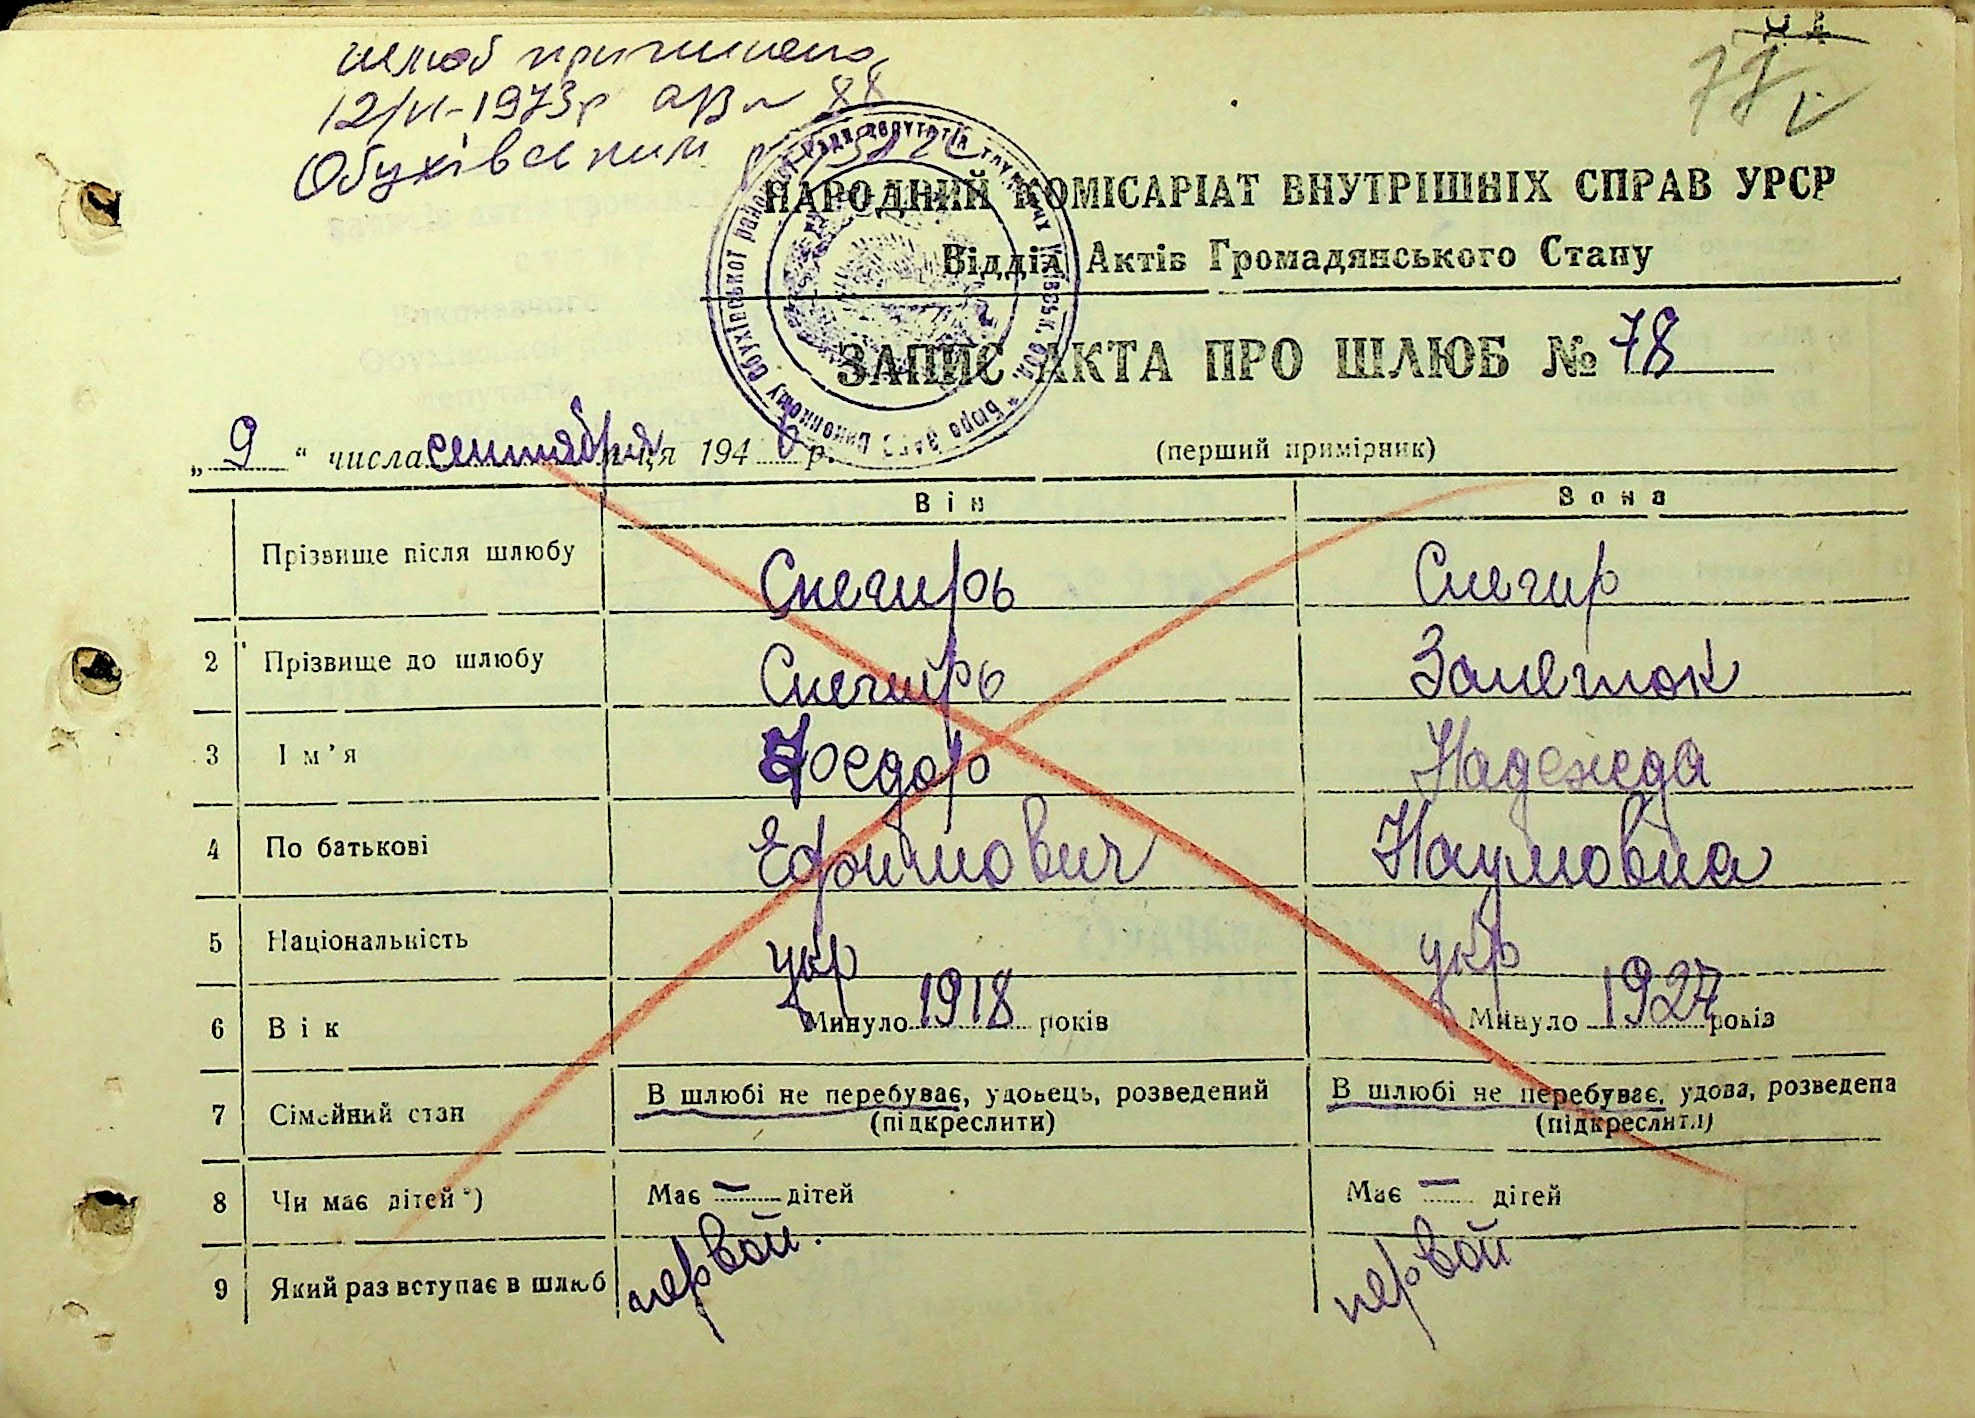 шлюб припинено
12/VI-1973р а/з № 88
Обухівським
77
НАРОДНИЙ КОМІСАРІАТ ВНУТРІШНІХ СПРАВ УРСР
Відділ Актів Громадянського Стану
ЗАПИС АКТА ПРО ШЛЮБ № 78
„ 9 “ числа сентября м-ця 1946 р.
(перший примірник)
Він Вона
Прізвище після шлюбу Снегирь Снегир
2 Прізвище до шлюбу Снегирь Заметок
3 Ім'я Федор Надежда
4 По батькові Ефимович Наумовна
5 Національність укр укр
6 Вік Минуло 1918 років Минуло 1927 років
7 Сімейний стан В шлюбі не перебуває, удовець, розведений В шлюбі не перебуває, удова, розведена
(підкреслити) (підкреслити)
8 Чи має дітей*) Має — дітей Має — дітей
9 Який раз вступає в шлюб первой. первой